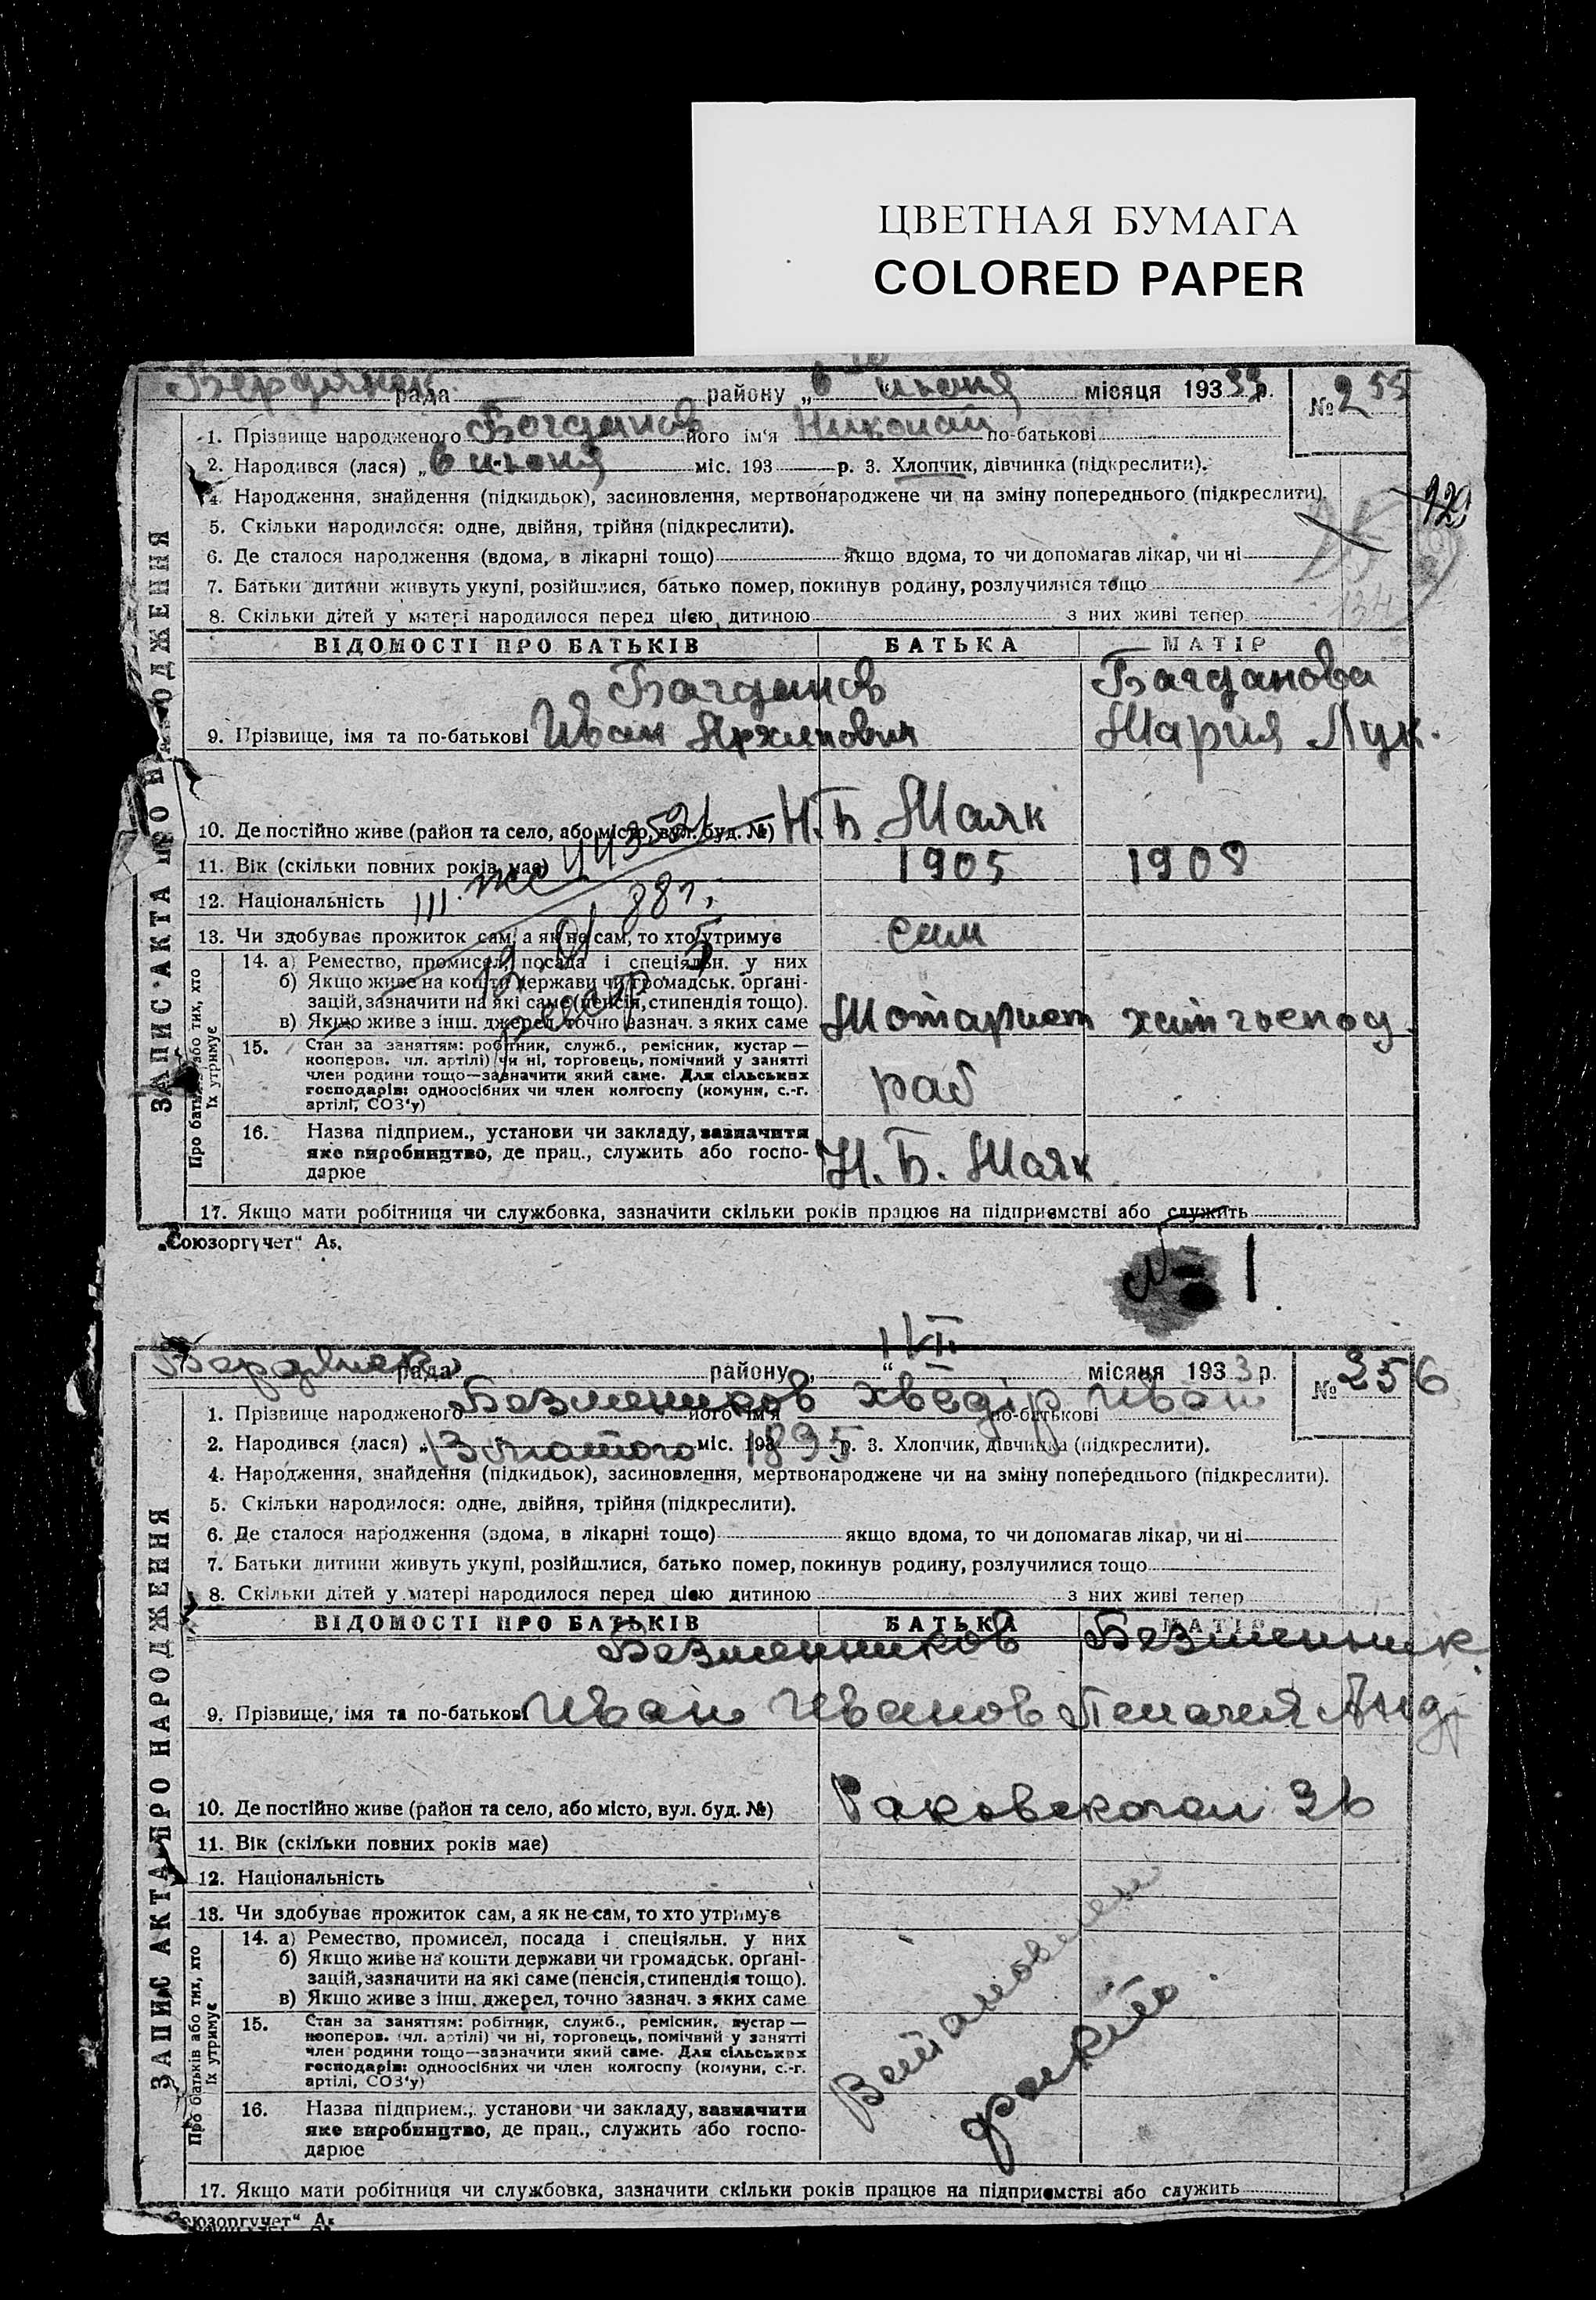 ЦВЕТНАЯ БУМАГА
COLORED PAPER
Бердянск. рада району „6 июня місяця 193 33р. № 255
1. Прізвище народженого Богданов його ім'я Николай по-батькові
2. Народився (лася) „ 6 июня міс. 193 р. 3. Хлопчик, дівчинка (підкреслити).
4. Народження, знайдення (підкидьок), засиновлення, мертвонароджене чи на зміну попереднього (підкреслити).
5. Скільки народилося: одне, двійня, трійня (підкреслити).
6. Де сталося народження (вдома, в лікарні тощо) якщо вдома, то чи допомагав лікар, чи ні
7. Батьки дитини живуть укупі, розійшлися, батько помер, покинув родину, розлучилися тощо
8. Скільки дітей у матері народилося перед цією дитиною з них живі тепер
134
ЗАПИС АКТА ПРО НАРОДЖЕННЯ
ВІДОМОСТІ ПРО БАТЬКІВ БАТЬКА МАТІР
Багданов Багданова
9. Прізвище, імя та по-батькові Иван Архипович Мария Лук.
10. Де постійно живе (район та село, або місто, вул. буд. №) Н.Б. Маяк
11. Вік (скільки повних років має) 1905 1908
12. Національність
13. Чи здобуває прожиток сам, а як не сам, то хто утримує сам
Про батьків або тих, хто їх утримує
14. а) Ремество, промисел, посада і спеціяльн. у них
б) Якщо живе на кошти держави чи громадськ. органі-
зацій, зазначити на які саме (пенсія, стипендія тощо).
в) Якщо живе з інш. джерел, точно зазнач. з яких саме Мотарист
15. Стан за заняттям: робітник, служб., ремісник, кустар —
кооперов. чл. артілі) чи ні, торговець, помічний у занятті
член родини тощо—зазначити який саме. Для сільських
господарів: одноосібних чи член колгоспу (комуни, с.-г.
артілі, СОЗ'у) раб
16. Назва підприєм., установи чи закладу, зазначити
яке виробництво, де прац., служить або госпо-
дарює Н.Б. Маяк
17. Якщо мати робітниця чи службовка, зазначити скільки років працює на підприємстві або служить
„Союзоргучет“ А₅.
№ 1
Бердянск рада району „ “ місяця 193 3 р. № 256
1. Прізвище народженого Безменников його ім'я Хведір по-батькові Иван
2. Народився (лася) „ 13 лютого міс. 193 1895 р. 3. Хлопчик, дівчинка (підкреслити).
4. Народження, знайдення (підкидьок), засиновлення, мертвонароджене чи на зміну попереднього (підкреслити).
5. Скільки народилося: одне, двійня, трійня (підкреслити).
6. Де сталося народження (вдома, в лікарні тощо) якщо вдома, то чи допомагав лікар, чи ні
7. Батьки дитини живуть укупі, розійшлися, батько помер, покинув родину, розлучилися тощо
8. Скільки дітей у матері народилося перед цією дитиною з них живі тепер
ЗАПИС АКТА ПРО НАРОДЖЕННЯ
ВІДОМОСТІ ПРО БАТЬКІВ БАТЬКА МАТІР
Безменников Безменник.
9. Прізвище, імя та по-батькові Иван Иванов Пелагея Анд
10. Де постійно живе (район та село, або місто, вул. буд. №) Раковского 36
11. Вік (скільки повних років має)
12. Національність
13. Чи здобуває прожиток сам, а як не сам, то хто утримує
Про батьків або тих, хто їх утримує
14. а) Ремество, промисел, посада і спеціяльн. у них
б) Якщо живе на кошти держави чи громадськ. органі-
зацій, зазначити на які саме (пенсія, стипендія тощо).
в) Якщо живе з інш. джерел, точно зазнач. з яких саме
15. Стан за заняттям: робітник, служб., ремісник, кустар —
кооперов. чл. артілі) чи ні, торговець, помічний у занятті
член родини тощо—зазначити який саме. Для сільських
господарів: одноосібних чи член колгоспу (комуни, с.-г.
артілі, СОЗ'у)
16. Назва підприєм., установи чи закладу, зазначити
яке виробництво, де прац., служить або госпо-
дарює
17. Якщо мати робітниця чи службовка, зазначити скільки років працює на підприємстві або служить
„Союзоргучет“ А₅